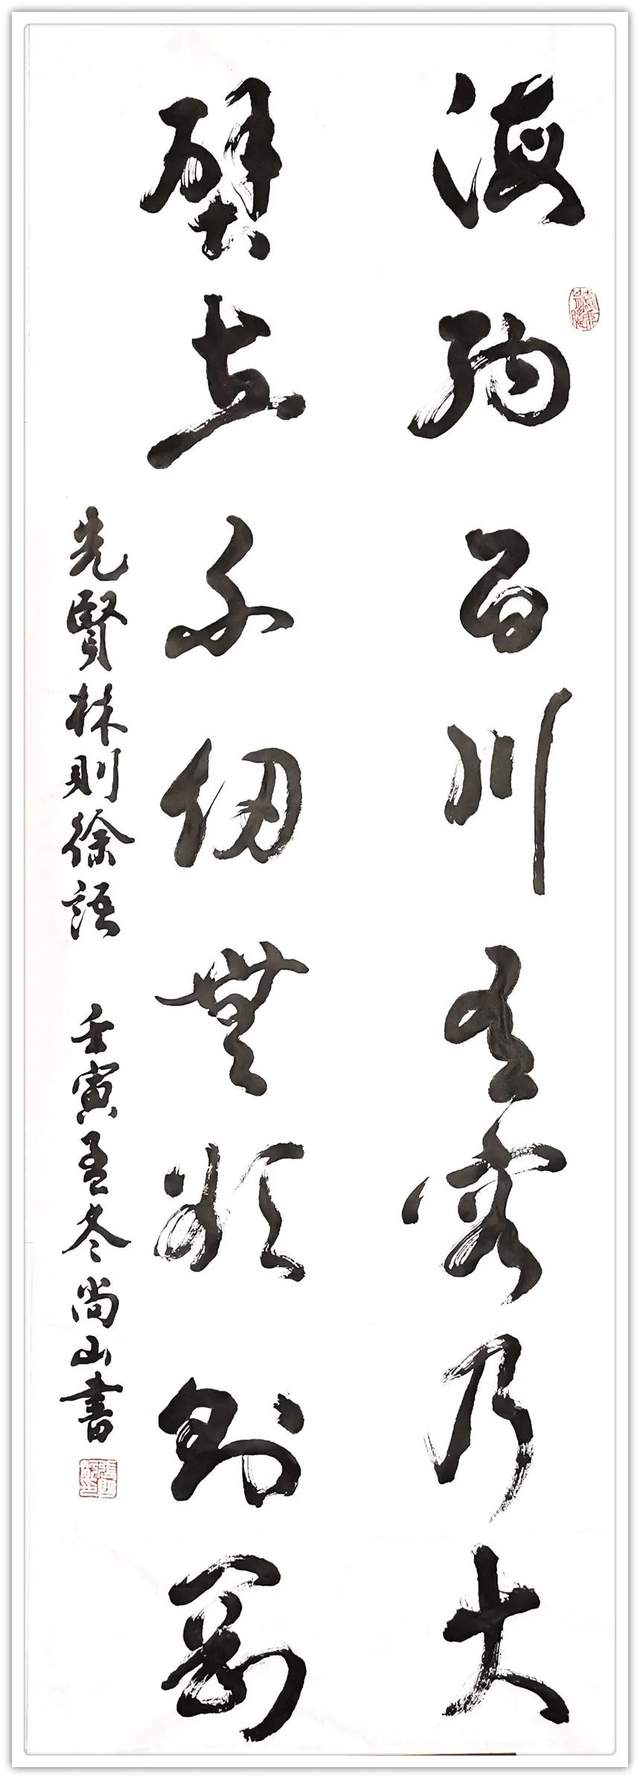 海納百川有容乃大
壁立千仞無欲則剛
先賢林則徐語 壬寅孟冬尚山書